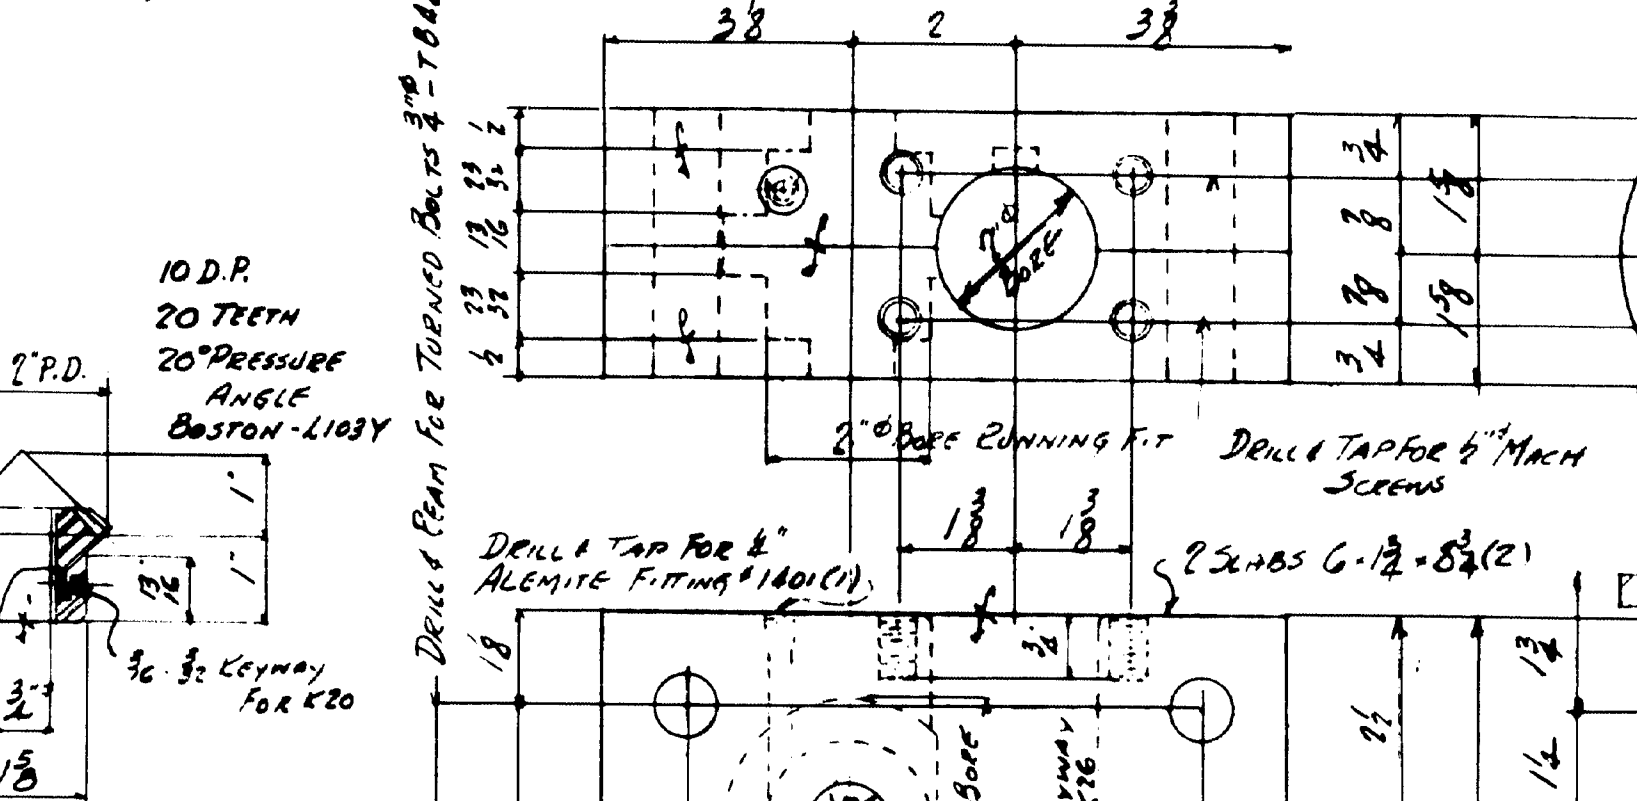 3 1/8
2
3 3/8
DRILL & REAM FOR TURNED BOLTS 3/4"ø - T BA
1/2
23/32
13/16
23/32
1/2
3/4
7/8
7/8
3/4
1 5/8
1 5/8
2"ø
BORE
10 D.P.
20 TEETH
20° PRESSURE
ANGLE
BOSTON - L103Y
2" P.D.
1"
1"
13/16
3/16 · 3/32 KEYWAY
FOR K20
3/4"
1 5/8
2"ø BORE RUNNING FIT
DRILL & TAP FOR 1/2"ø MACH
SCREWS
1 3/8
1 3/8
DRILL & TAP FOR 1/4"
ALEMITE FITTING #1401 (1)
2 SLABS 6 · 1 3/4 · 8 3/4 (2)
1 1/8
3/4
BORE
YWAY
K26
2 1/2
1 3/4
1 1/4